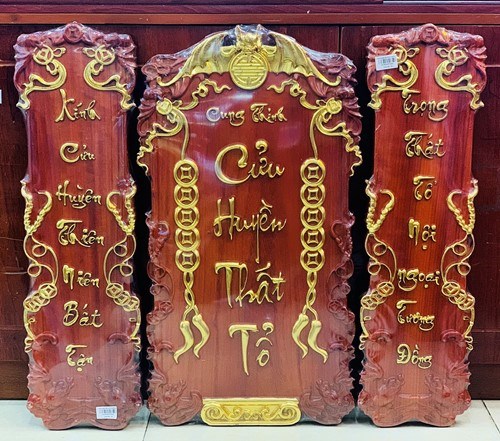 Kính
Cửu
Huyền
Thiên
Niên
Bát
Tận
Cung Thỉnh
Cửu
Huyền
Thất
Tổ
Trọng
Thất
Tổ
Nội
Ngoại
Tương
Đồng